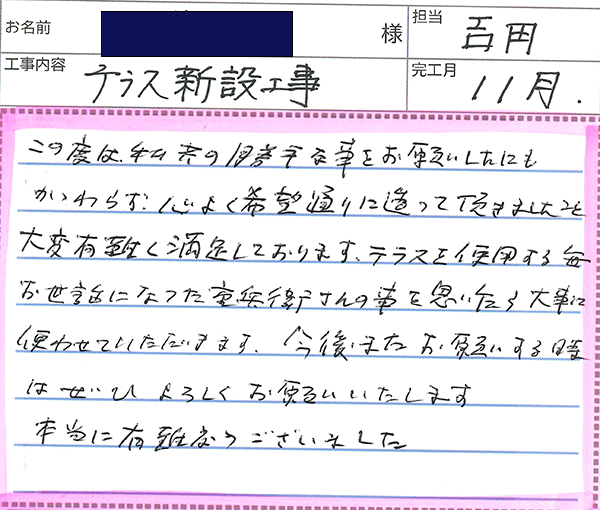 お名前 様 担当 吉田
工事内容 テラス新設工事 完工月 11月.
この度は、私共の自分勝手な事をお願いしたにも
かかわらず、心よく希望通りに造って頂きましたこと
大変有難く満足しております、テラスを使用する毎
お世話になった重兵衛さんの事を思いたち大事に
使わせていただきます、今後またお願いする時
はぜひよろしくお願いいたします
本当に有難うございました